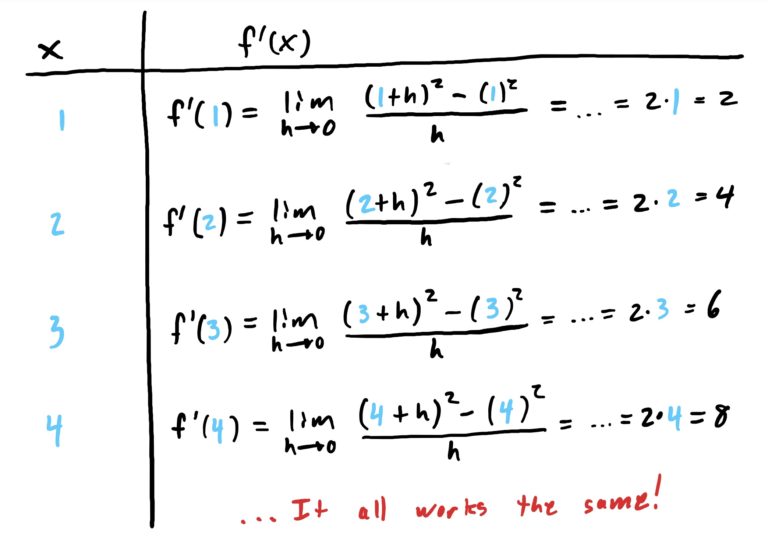 x f'(x)
1 f'(1) = lim h→0 ((1+h)² - (1)²)/h = ... = 2·1 = 2
2 f'(2) = lim h→0 ((2+h)² - (2)²)/h = ... = 2·2 = 4
3 f'(3) = lim h→0 ((3+h)² - (3)²)/h = ... = 2·3 = 6
4 f'(4) = lim h→0 ((4+h)² - (4)²)/h = ... = 2·4 = 8
... It all works the same!